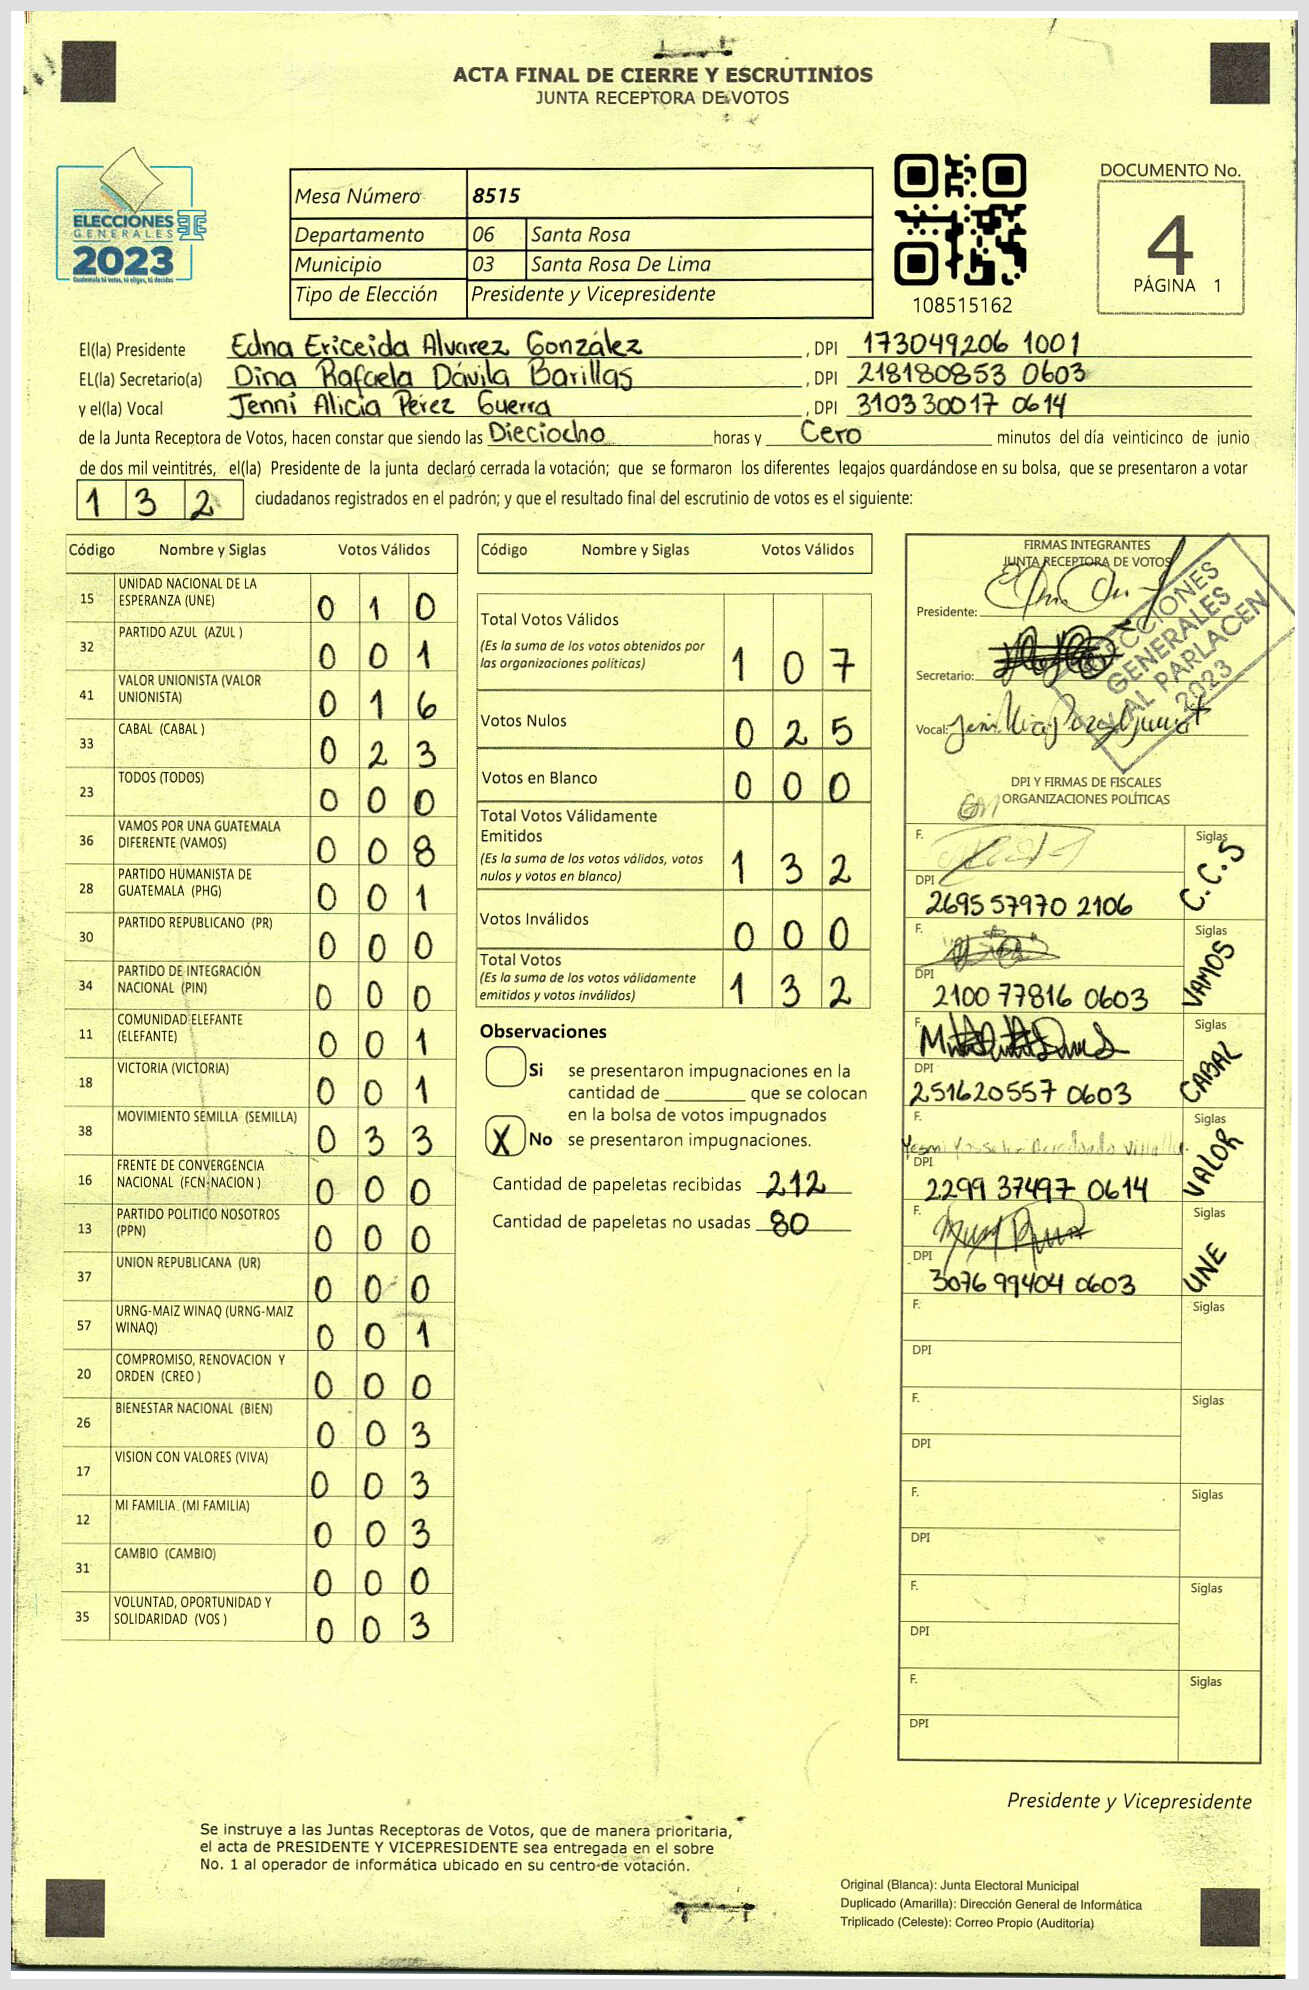 ACTA FINAL DE CIERRE Y ESCRUTINIOS
JUNTA RECEPTORA DE VOTOS
ELECCIONES
GENERALES
2023
Guatemala tú votas, tú eliges, tú decides
TSE
Mesa Número 8515
Departamento 06 Santa Rosa
Municipio 03 Santa Rosa De Lima
Tipo de Elección Presidente y Vicepresidente
108515162
DOCUMENTO No.
4
PÁGINA 1
El(la) Presidente Edna Ericeida Alvarez González , DPI 173049206 1001
EL(la) Secretario(a) Dina Rafaela Dávila Barillas , DPI 218180853 0603
y el(la) Vocal Jenni Alicia Pérez Guerra , DPI 310330017 0614
de la Junta Receptora de Votos, hacen constar que siendo las Dieciocho horas y Cero minutos del día veinticinco de junio
de dos mil veintitrés, el(la) Presidente de la junta declaró cerrada la votación; que se formaron los diferentes legajos guardándose en su bolsa, que se presentaron a votar
132 ciudadanos registrados en el padrón; y que el resultado final del escrutinio de votos es el siguiente:
Código Nombre y Siglas Votos Válidos
15 UNIDAD NACIONAL DE LA ESPERANZA (UNE) 010
32 PARTIDO AZUL (AZUL ) 001
41 VALOR UNIONISTA (VALOR UNIONISTA) 016
33 CABAL (CABAL ) 023
23 TODOS (TODOS) 000
36 VAMOS POR UNA GUATEMALA DIFERENTE (VAMOS) 008
28 PARTIDO HUMANISTA DE GUATEMALA (PHG) 001
30 PARTIDO REPUBLICANO (PR) 000
34 PARTIDO DE INTEGRACIÓN NACIONAL (PIN) 000
11 COMUNIDAD ELEFANTE (ELEFANTE) 001
18 VICTORIA (VICTORIA) 001
38 MOVIMIENTO SEMILLA (SEMILLA) 033
16 FRENTE DE CONVERGENCIA NACIONAL (FCN-NACION ) 000
13 PARTIDO POLITICO NOSOTROS (PPN) 000
37 UNION REPUBLICANA (UR) 000
57 URNG-MAIZ WINAQ (URNG-MAIZ WINAQ) 001
20 COMPROMISO, RENOVACION Y ORDEN (CREO ) 000
26 BIENESTAR NACIONAL (BIEN) 003
17 VISION CON VALORES (VIVA) 003
12 MI FAMILIA (MI FAMILIA) 003
31 CAMBIO (CAMBIO) 000
35 VOLUNTAD, OPORTUNIDAD Y SOLIDARIDAD (VOS ) 003
Código Nombre y Siglas Votos Válidos
Total Votos Válidos
(Es la suma de los votos obtenidos por las organizaciones políticas) 107
Votos Nulos 025
Votos en Blanco 000
Total Votos Válidamente Emitidos
(Es la suma de los votos válidos, votos nulos y votos en blanco) 132
Votos Inválidos 000
Total Votos
(Es la suma de los votos válidamente emitidos y votos inválidos) 132
Observaciones
Si se presentaron impugnaciones en la
cantidad de ________ que se colocan
en la bolsa de votos impugnados
X No se presentaron impugnaciones.
Cantidad de papeletas recibidas 212
Cantidad de papeletas no usadas 80
FIRMAS INTEGRANTES
JUNTA RECEPTORA DE VOTOS
Presidente:
Secretario:
Vocal:
ELECCIONES
GENERALES
Y AL PARLACEN
2023
DPI Y FIRMAS DE FISCALES
ORGANIZACIONES POLÍTICAS
F. Siglas C.C.S
DPI 269557970 2106
F. Siglas VAMOS
DPI 2100 77816 0603
F. Siglas CABAL
DPI 251620557 0603
F. Siglas VALOR
DPI 2299 37497 0614
F. Siglas UNE
DPI 3076 99404 0603
F. Siglas
DPI
F. Siglas
DPI
F. Siglas
DPI
F. Siglas
DPI
F. Siglas
DPI
Presidente y Vicepresidente
Se instruye a las Juntas Receptoras de Votos, que de manera prioritaria,
el acta de PRESIDENTE Y VICEPRESIDENTE sea entregada en el sobre
No. 1 al operador de informática ubicado en su centro de votación.
Original (Blanca): Junta Electoral Municipal
Duplicado (Amarilla): Dirección General de Informática
Triplicado (Celeste): Correo Propio (Auditoría)